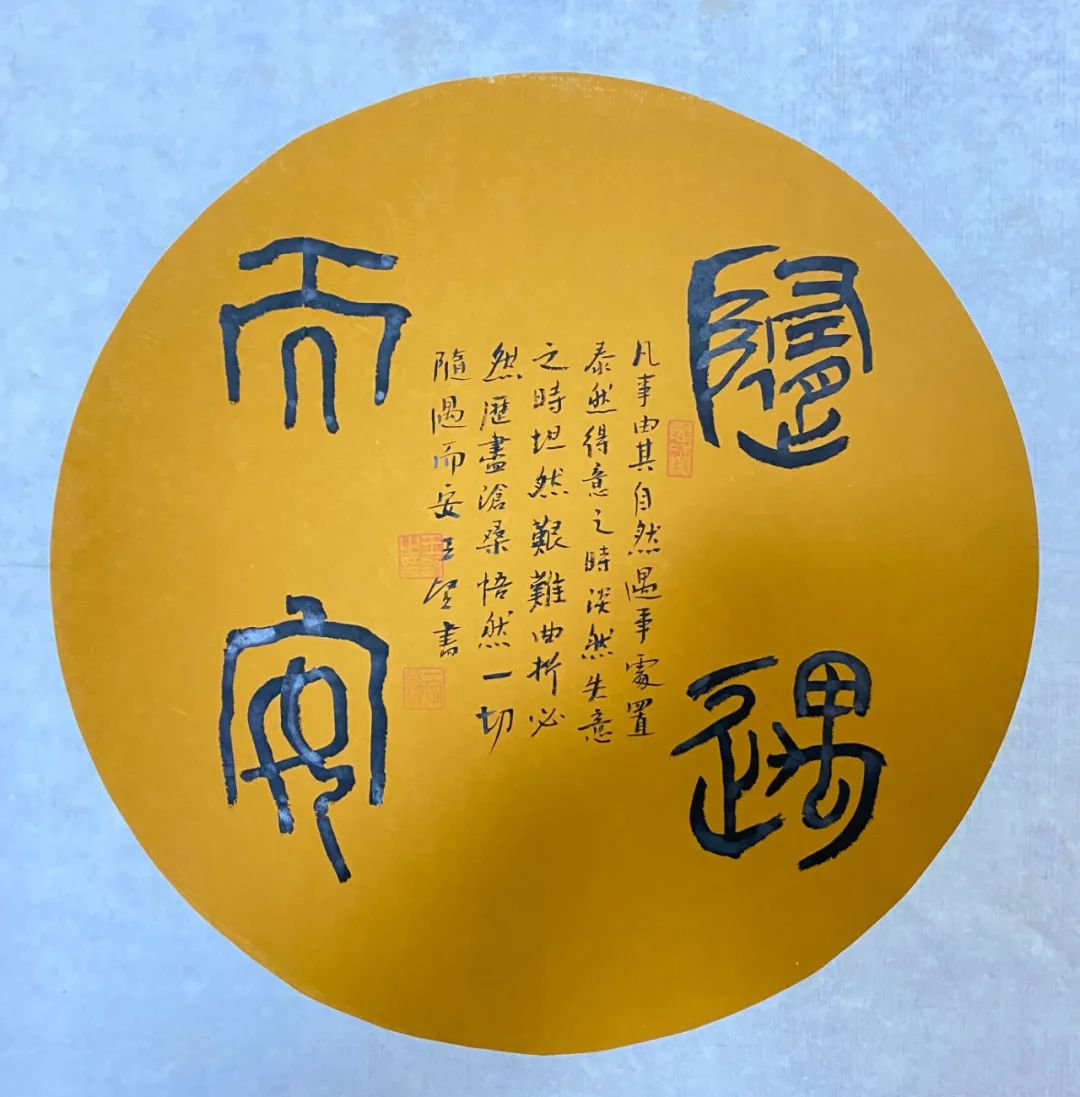 隨遇
而安
凡事由其自然遇事處置
泰然得意之時淡然失意
之時坦然艱難曲折必
然歷盡滄桑悟然一切
隨遇而安王書